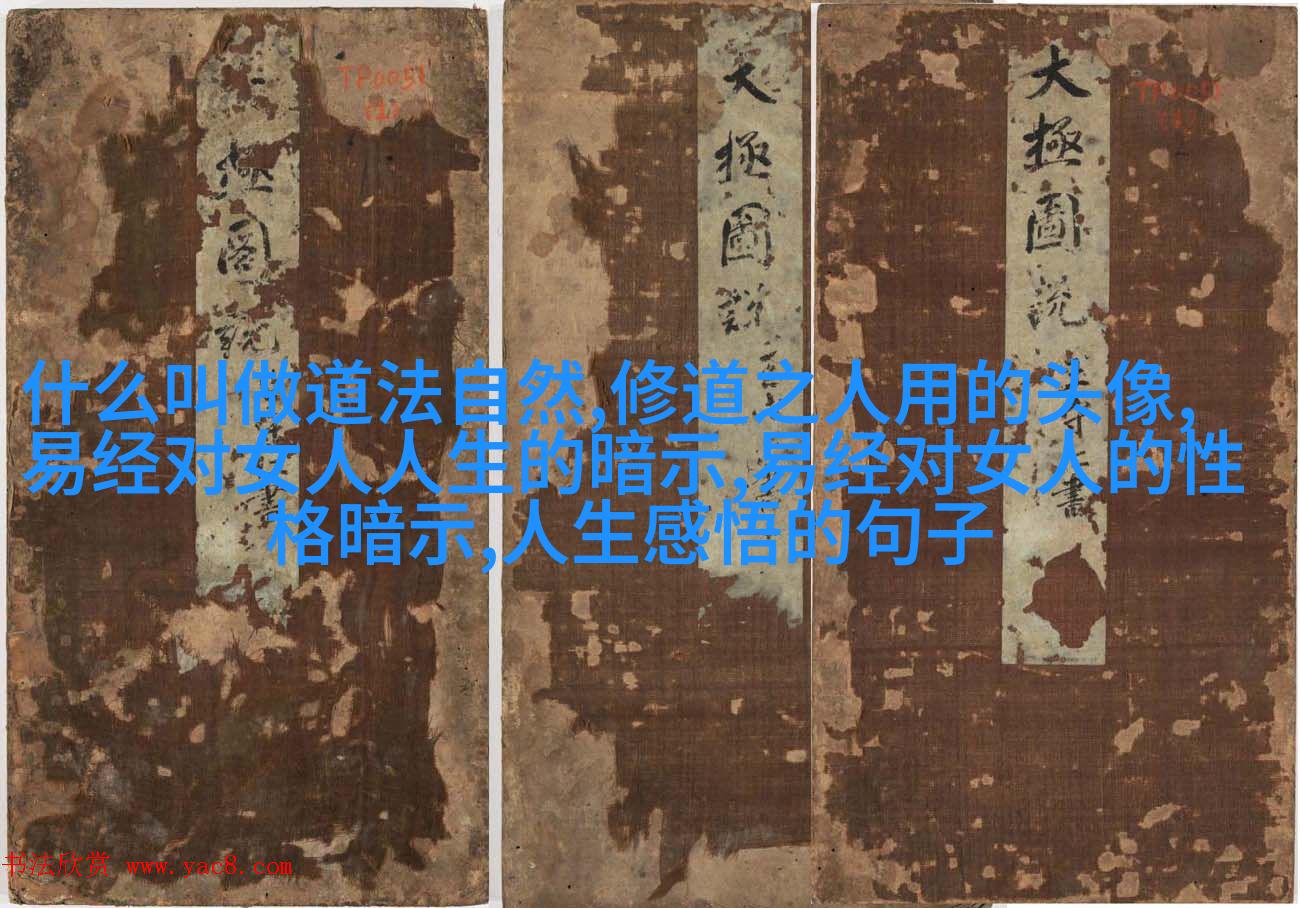 TP0051
(1)
極圖說
大極圖說
大極圖說
書
書
什么叫做道法自然,修道之人用的头像,
易经对女人人生的暗示,易经对女人的性
格暗示,人生感悟的句子
书法欣赏 www.yac8.com